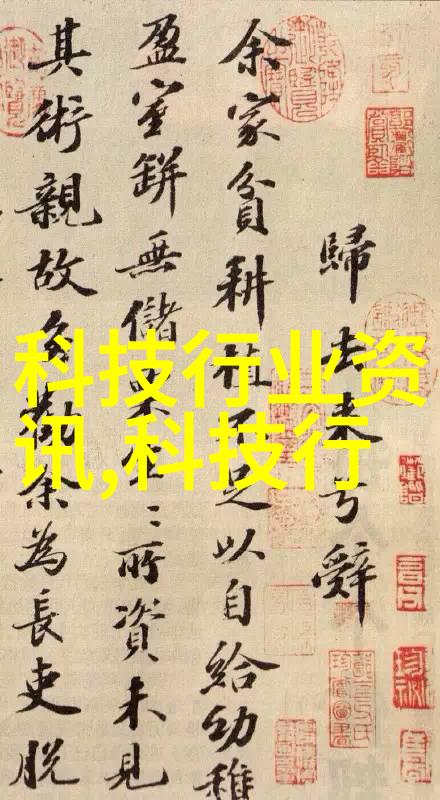 歸去来兮辭
余家貧耕植不足以自給幼稚
盈室缾無儲粟生〻所資未見
其術親故多勸余為長吏脱
科技行业资
讯,科技行